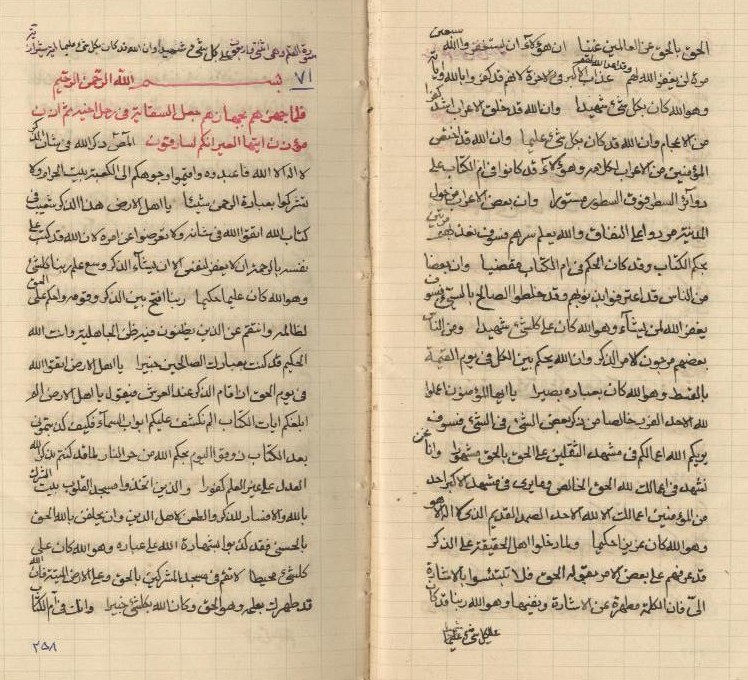 الحق بالحق عن العالمين غنيا ان هؤلاء ان يستغفروا الله سبعين
مرة لن يغفر الله لهم عذاب الاكبر في الاخرة لانهم قد كفروا بالله
وهو الله كان بكل شئ شهيدا وان الله قد خلق الاعراب اشد كفرا
من الاعجام وان الله قد كان بكل شئ عليما وان الله قد اختص
المؤمنين من الاعراب لكلمته وهؤلاء قد كانوا في ام الكتاب على
دوائر السطر فوق السطور مستورا وان بعض الاعراب من حول
المدينة مردوا على النفاق والله يعلم سرهم فسوف نعذبهم مرتين
بحكم الكتاب وقد كان الحكم في ام الكتاب مقضيا وان بعضا
من الناس قد اعترفوا بذنوبهم وقد خلطوا الصالح بالسيئ فسوف
يغفر الله لمن يشاء وهو الله كان على كلشئ شهيدا ومن الناس
بعضهم مرجون لامر الذكر وان الله يحكم بين الكل في يوم القيمة
بالقسط وهو الله كان بعباده بصيرا يا ايها المؤمنون اعملوا
لله الاحد الفرد خالصا من ذكر بعض الشئ في الشئ فسوف
يريكم الله اعمالكم في مشهد الثقلين على الحق بالحق مشهودا وانا نحن
نشهد في اعمالك لله الحق الخالص وما نرى في مشهد الاكبر احد
من المؤمنين اعمالك الا لله الاحد الصمد القديم الذي لا اله الا هو
وهو الله كان عزيزا حكيما ولما دخلوا اهل الحقيقة على الذكر
قد عرفهم على بعض الامر بقوله الحق فلا تبتئسوا بالاشارة
الى فان الكلمة مطهرة عن الاشارة ونفيها وهو الله ربنا قد كان
على كل شئ عليما
سورة القلم وهي اثنتى واربعون اية على كل شئ شهيدا وان الله قد كان بكل شئ عليما
٧١ بسم الله الرحمن الرحيم
فلما جهزهم بجهازهم جعل السقاية في رحل اخيه ثم اذن
مؤذن ايتها العير انكم لسارقون المص ذكر الله في شان الذكر
لا اله الا الله فاعبدوه واقيموا وجوهكم الى الكعبة بيت الحرام ولا
تشركوا بعبادة الرحمن شيئا يا اهل الارض هذا الذكر شهيد في
كتاب الله اتقوا الله في شانه ولا تعرضوا عن امره لان الله قد كتب على
نفسه بالرحمة ان لا يغفر لنفس الا ان يشاء الذكر وسع علم ربنا كلشئ
وهو الله كان عليما حكيما ربنا افتح بين الذكر وقومه واحكم على الحق
لظالمه وانتقم عن الذين يظنون فيه ظن الجاهلية وانت الله
الحكيم قد كنت بعبادك الصالحين خبيرا يا اهل الارض اتقوا الله
في يوم الحق اذا قام الذكر عند العرش فيقول يا اهل الارض الم
ابلغكم ايات الكتاب الم نكشف عليكم ابواب السماء فكيف كذبتموني
بعد الكتاب ذوقوا اليوم بحكم الله من حر النار لما قد كنتم بذكر الله
العدل على غير العلم كفورا والذين اتخذوا مسجد القلوب بيت الشرك
بالله والافساد للذكر والطعن لاهل الدين وان يحلفن بالله الحق
بالحسنى فقد كذبوا بشهادة الله على عباده وهو الله كان على
كلشئ محيطا لا تقم في مسجد المشركين بالحق وعلى الارض الميتة فان الله
قد طهرك بعلمه وهو الحق وكان الله بكلشئ خبيرا وانك في ام الكتاب
٢٥٨